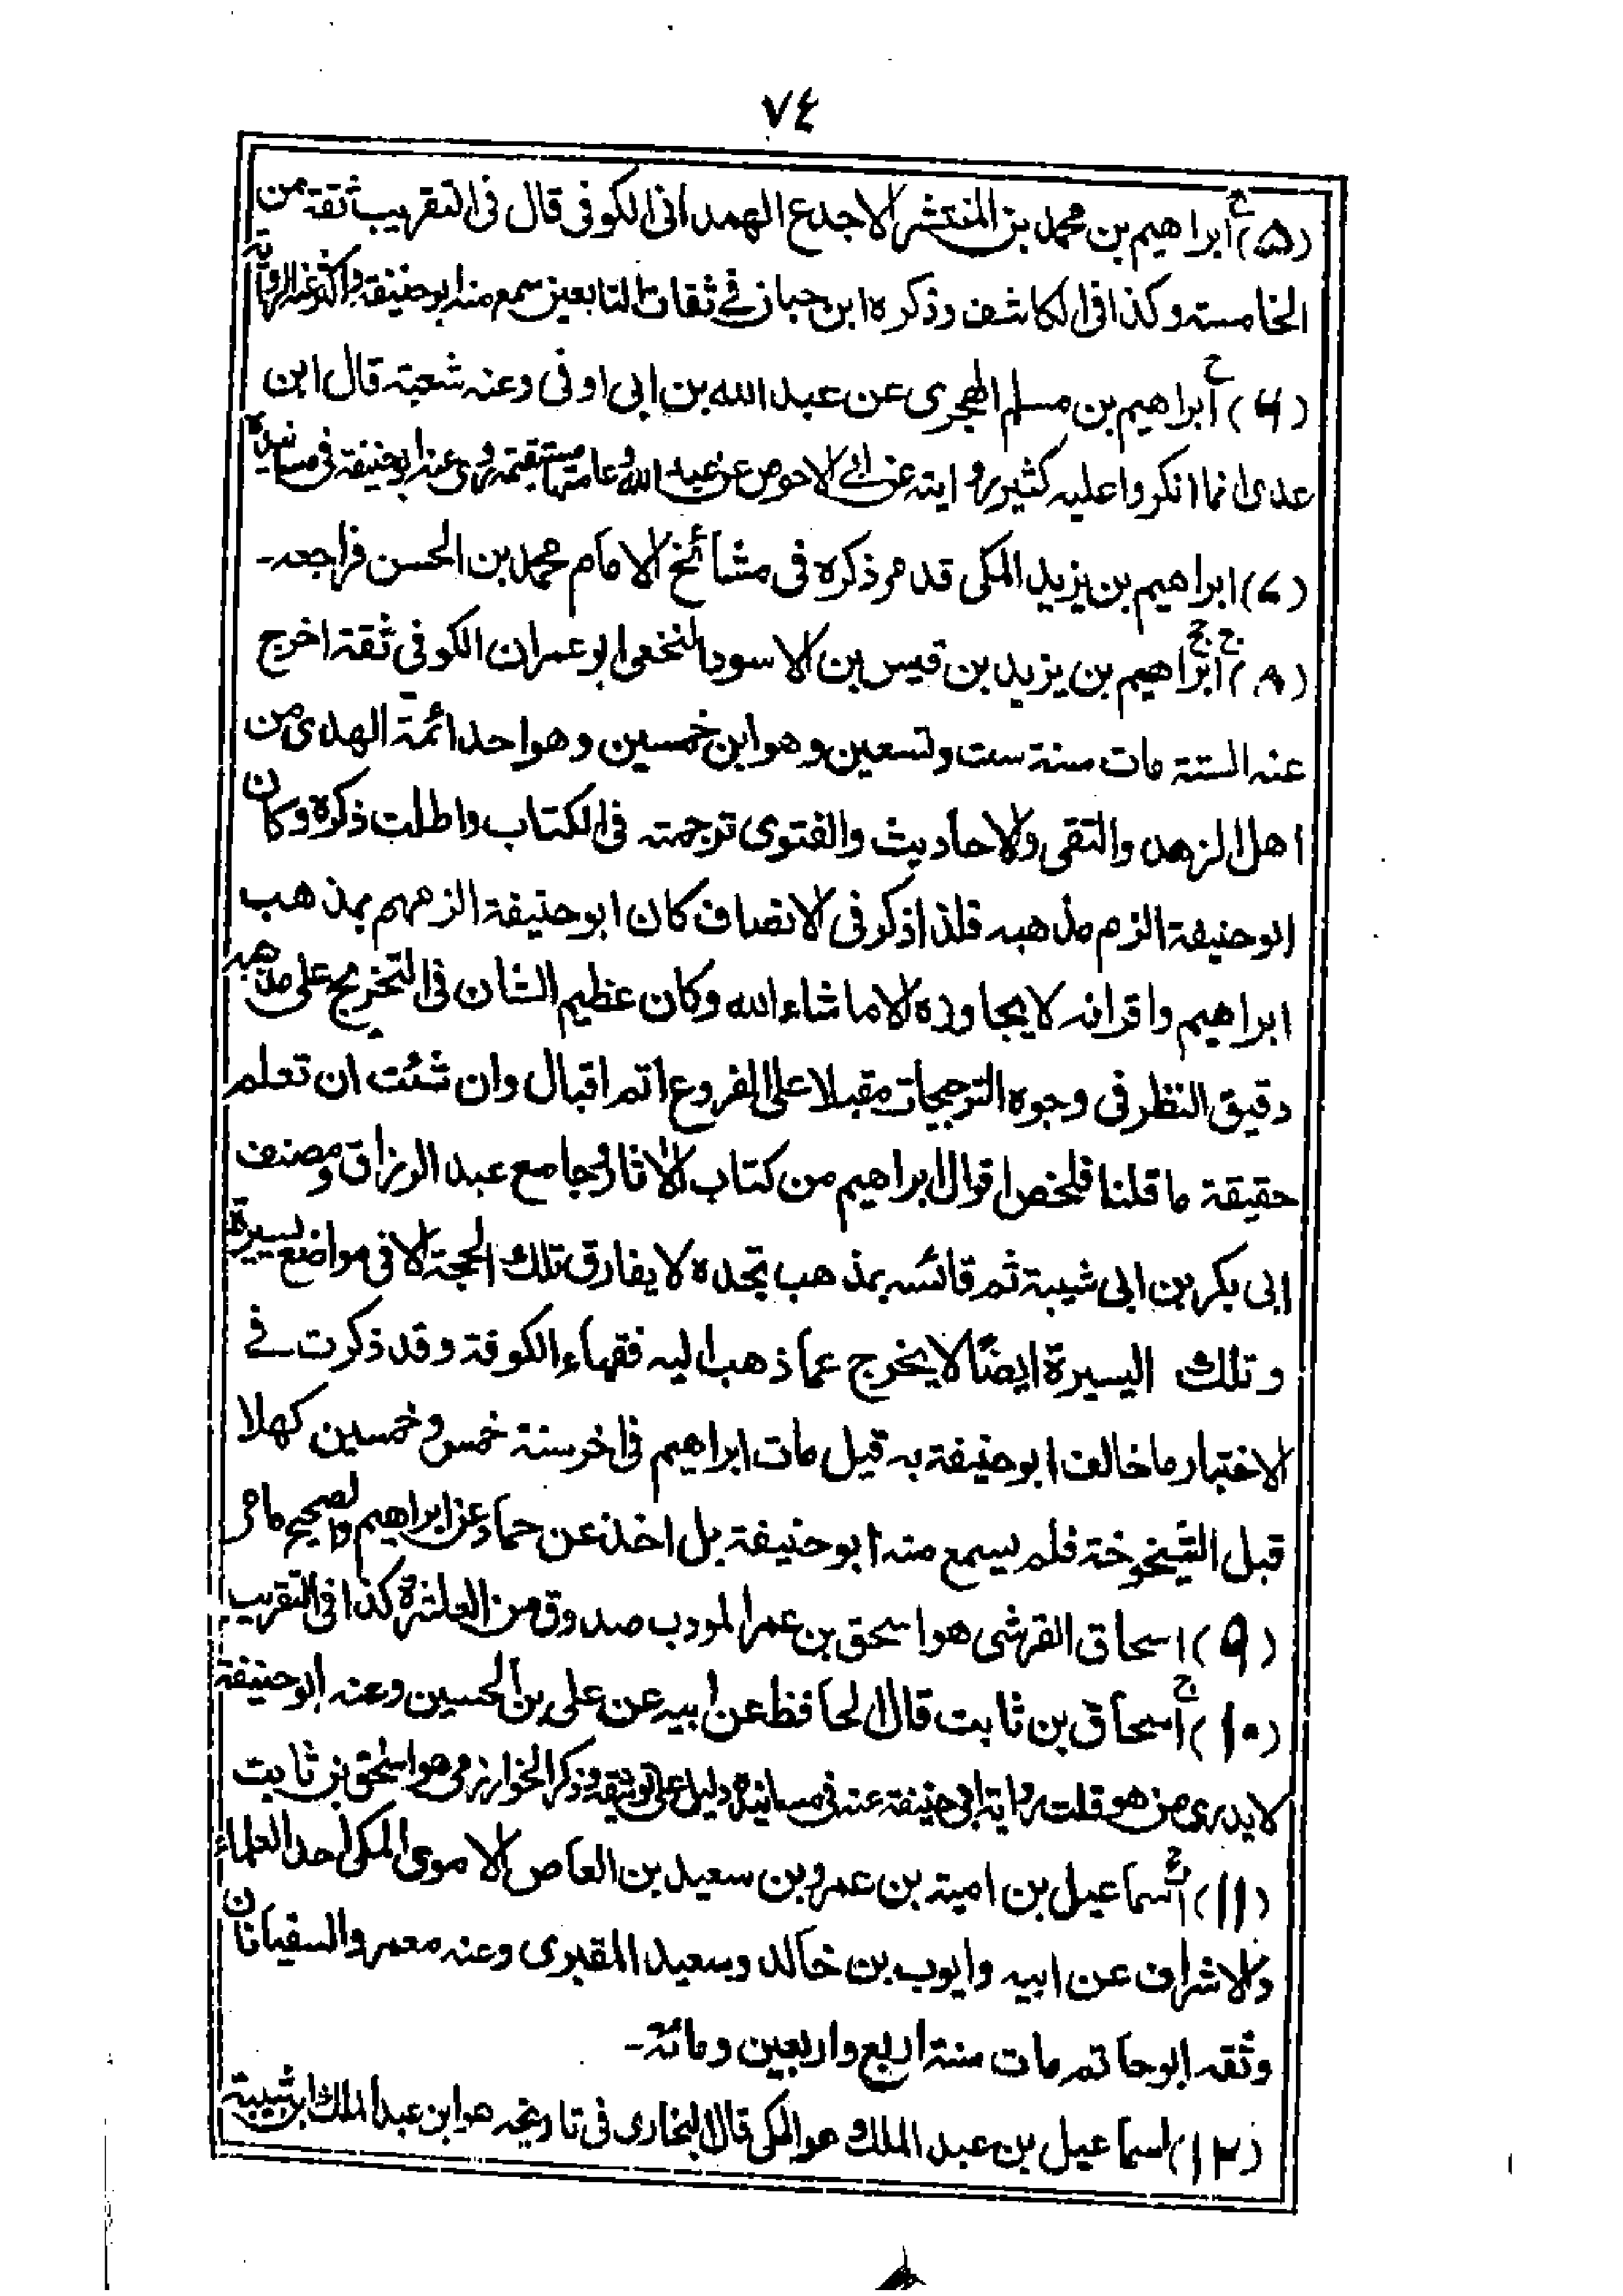 ٧٤
(٥) ح ابراهيم بن محمد بن المنتشر الاجدع الهمدانى الكوفى قال فى التقريب ثقة من
الخامسة وكذا فى الكاشف وذكره ابن حبان فى ثقات التابعين سمع منه ابو حنيفة واكثر عنه الرواية
(٦) ح ابراهيم بن مسلم الهجرى عن عبد الله بن ابى اوفى وعنه شعبة قال ابن
عدى انما انكروا عليه كثير روايته عن ابى الاحوص عن عبد الله وعامتها مستقيمة وروى عنه ابو حنيفة فى مسانيده
(٧) ابراهيم بن يزيد المكى قد مر ذكره فى مشائخ الامام محمد بن الحسن فراجعه۔
(٨) ح ج ابراهيم بن يزيد بن قيس بن الاسود النخعى ابو عمران الكوفى ثقة اخرج
عنه الستة مات سنة ست وتسعين وهو ابن خمسين وهو احد ائمة الهدى من
اهل الزهد والتقى والاحاديث والفتوى ترجمته فى الكتاب واطلت ذكره وكان
ابو حنيفة الزم مذهبه فلذا ذكر فى الانصاف كان ابو حنيفة الزمهم بمذهب
ابراهيم واقرانه لا يجاوزه الا ما شاء الله وكان عظيم الشان فى التخريج على مذهبه
دقيق النظر فى وجوه الترجيحات مقبلا على الفروع اتم اقبال وان شئت ان تعلم
حقيقة ما قلنا فلخص اقوال ابراهيم من كتاب الاثار وجامع عبد الرزاق ومصنف
ابى بكر بن ابى شيبة ثم قائسه بمذهب تجده لا يفارق تلك الحجة الا فى مواضع يسيرة
وتلك اليسيرة ايضًا لا يخرج عما ذهب اليه فقهاء الكوفة وقد ذكرت فى
الاختيار ما خالف ابو حنيفة به قيل مات ابراهيم فى اخر سنة خمس وخمسين كهلا
قبل الشيخوخة فلم يسمع منه ابو حنيفة بل اخذ عن حماد عن ابراهيم والصحيح ما مر
(٩) اسحاق القرشى هو اسحق بن عمر المودب صدوق من العاشرة كذا فى التقريب
(١٠) ح اسحاق بن ثابت قال الحافظ عن ابيه عن على بن الحسين وعنه ابو حنيفة
لا يدرى من هو قلت رواية ابى حنيفة عنه فى مسانيده دليل على توثيقه وذكر الخوارزمى هو اسحق بن ثابت
(١١) ح اسماعيل بن امية بن عمرو بن سعيد بن العاص الاموى المكى احد العلماء
والاشراف عن ابيه وايوب بن خالد وسعيد المقبرى وعنه معمر والسفيانان
وثقه ابو حاتم مات سنة اربع واربعين ومائة۔
(١٢) اسماعيل بن عبد الملك هو المكى قال البخارى فى تاريخه هو ابن عبد الملك ابن شيبة